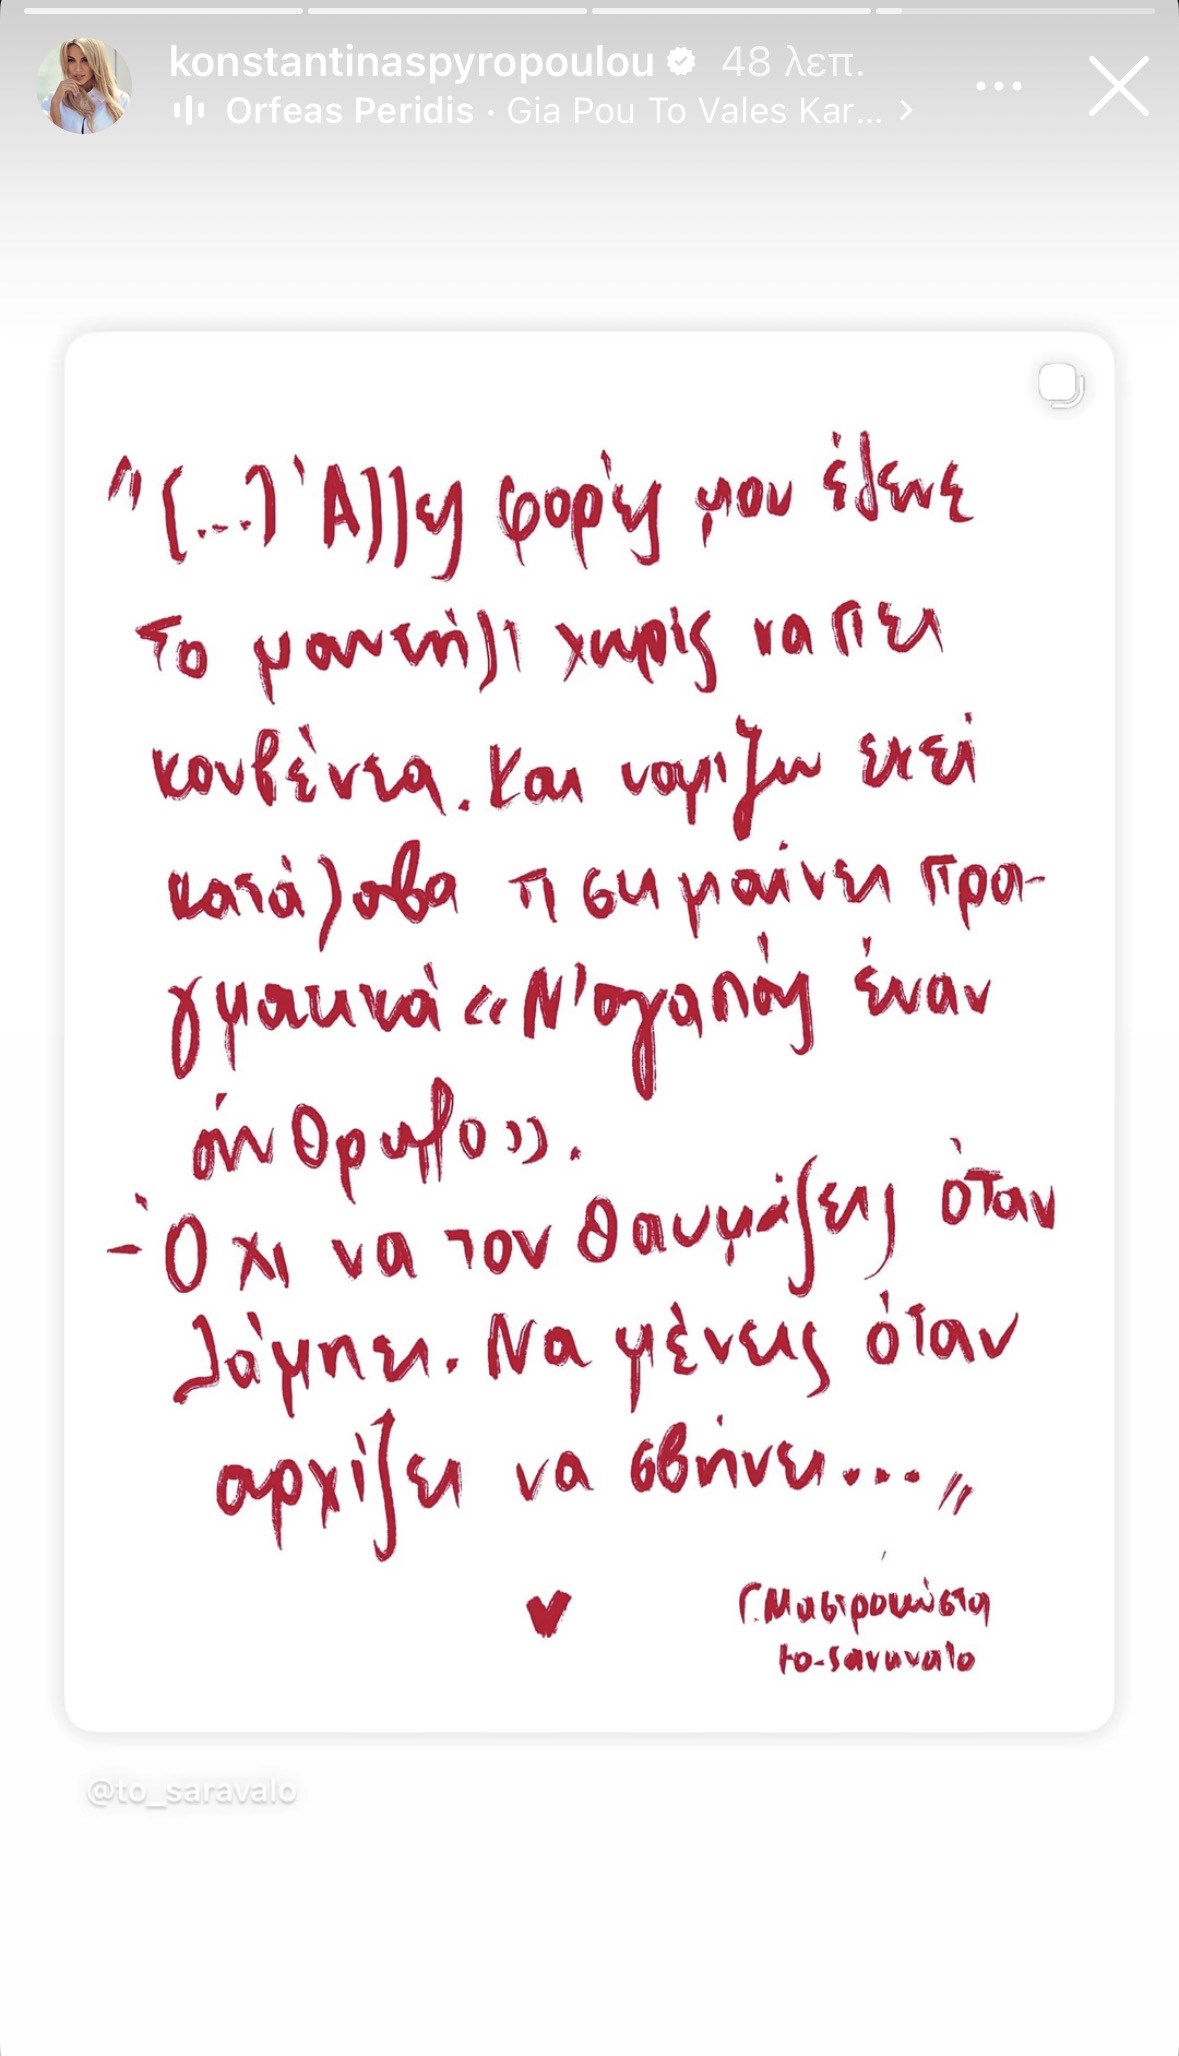 konstantinaspyropoulou 48 λεπ.
Orfeas Peridis · Gia Pou To Vales Kar... >
"(...) Άλλες φορές μου έδενε
το μαντήλι χωρίς να πει
κουβέντα. Και νομίζω εκεί
κατάλαβα τι σημαίνει πρα-
γματικά «Ν'αγαπάς έναν
άνθρωπο».
- Όχι να τον θαυμάζεις όταν
λάμπει. Να μένεις όταν
αρχίζει να σβήνει..."
Γ. Μαστροκώστα
to-saravalo
@to_saravalo